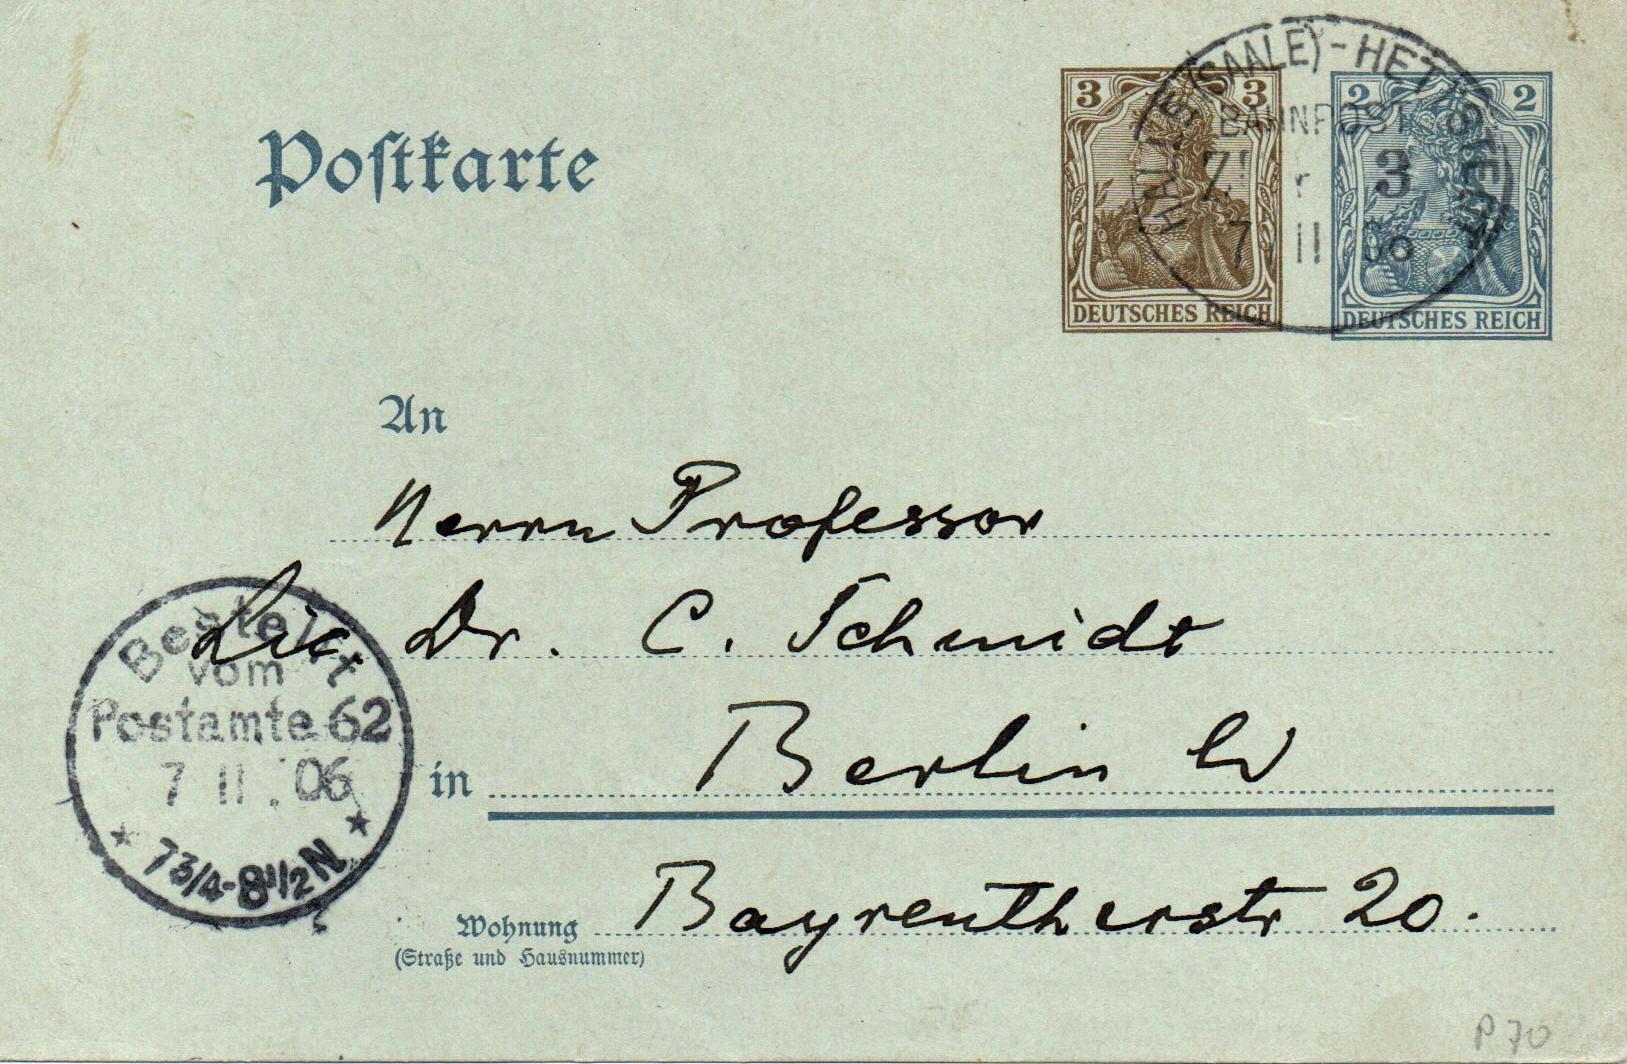 HALLE (SAALE) - HETTSTEDT
BAHNPOST
3
7 11 06
3 3
DEUTSCHES REICH
2 2
DEUTSCHES REICH
Postkarte
An
Herrn Professor
Lic. Dr. C. Schmidt
in Berlin W
Wohnung Bayreutherstr 20.
(Straße und Hausnummer)
Bestellt
vom
Postamte 62
7 11 . 06
7 3/4 - 8 1/2 N
P 70